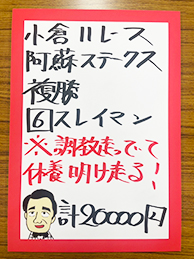 小倉11レース
阿蘇ステークス
複勝
6スレイマン
※調教走ってて
休養明け走る!
計20000円